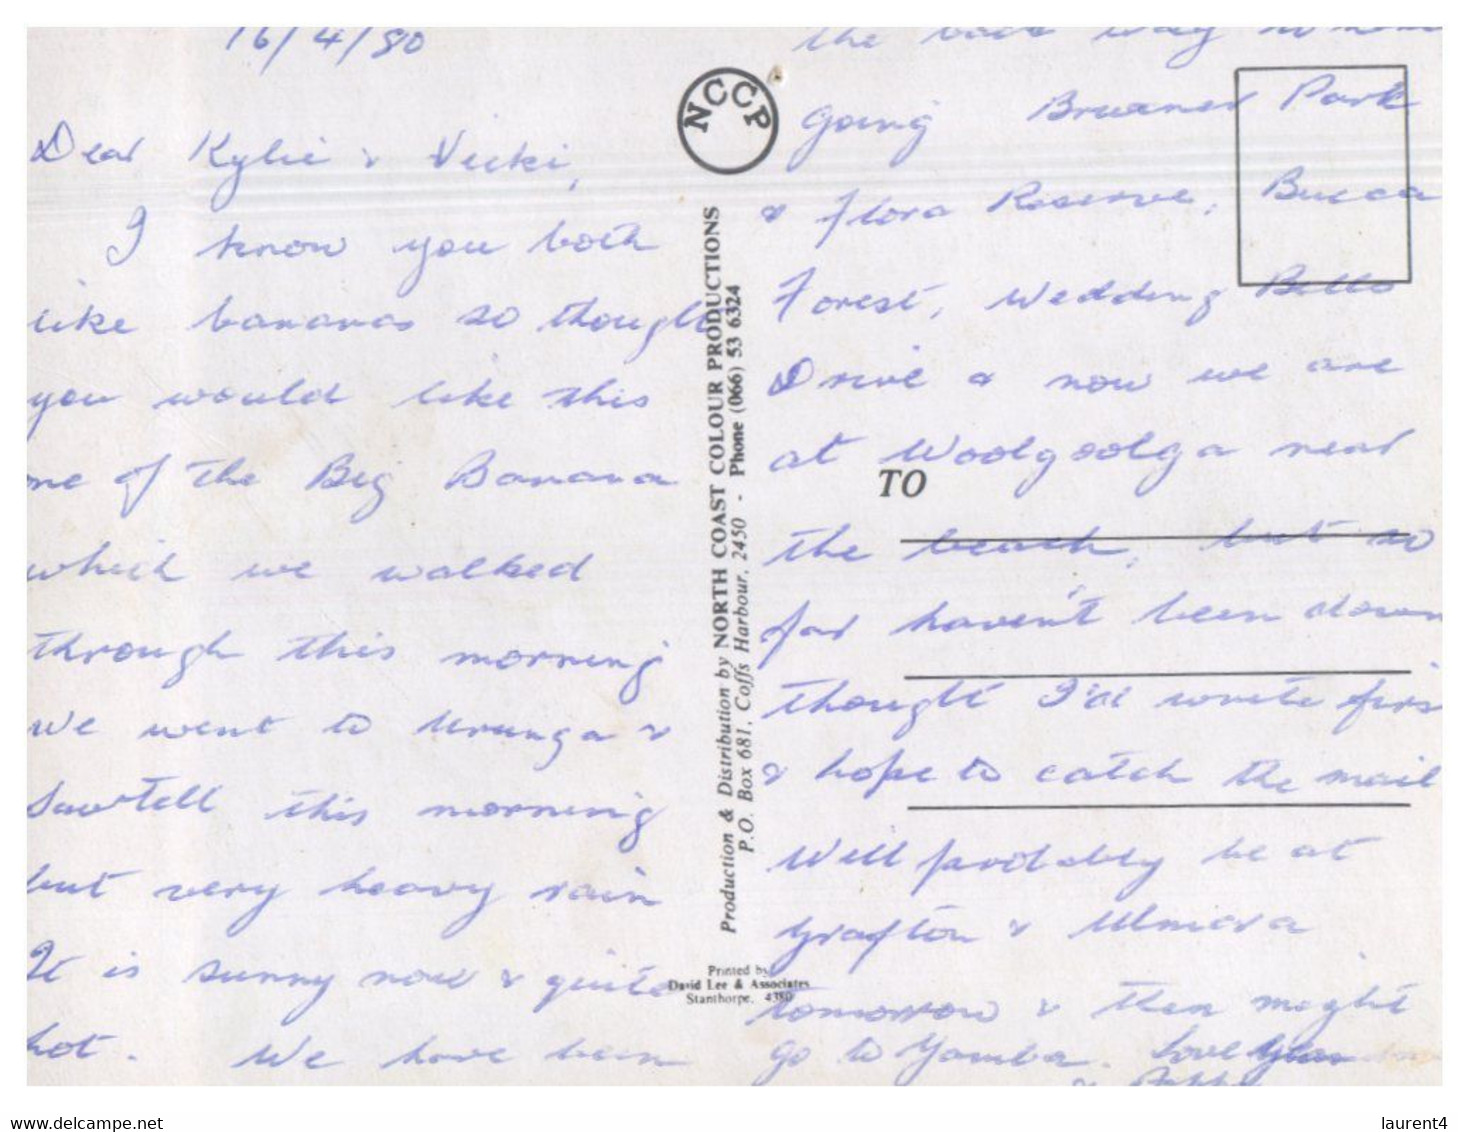 16/4/80
Dear Kylie & Vicki,
I know you both
like bananas so though
you would like this
one of the Big Banana
which we walked
through this morning
We went to Urunga &
Sawtell this morning
but very heavy rain
It is sunny now & quite
hot. We have been
the back way
going Bruxner Park
& Flora Reserve, Bucca
Forest, Wedding Bells
Drive & now we are
at Woolgoolga near
the beach, but so
far haven't been down
thought I'd write firs
& hope to catch the mail
Will probably be at
Grafton & Ulmara
tomorrow & then might
go to Yamba. Love
NCCP
Production & Distribution by NORTH COAST COLOUR PRODUCTIONS
P.O. Box 681, Coffs Harbour, 2450 - Phone (066) 53 6324
Printed by
David Lee & Associates
Stanthorpe, 4380
TO
www.delcampe.net
laurent4